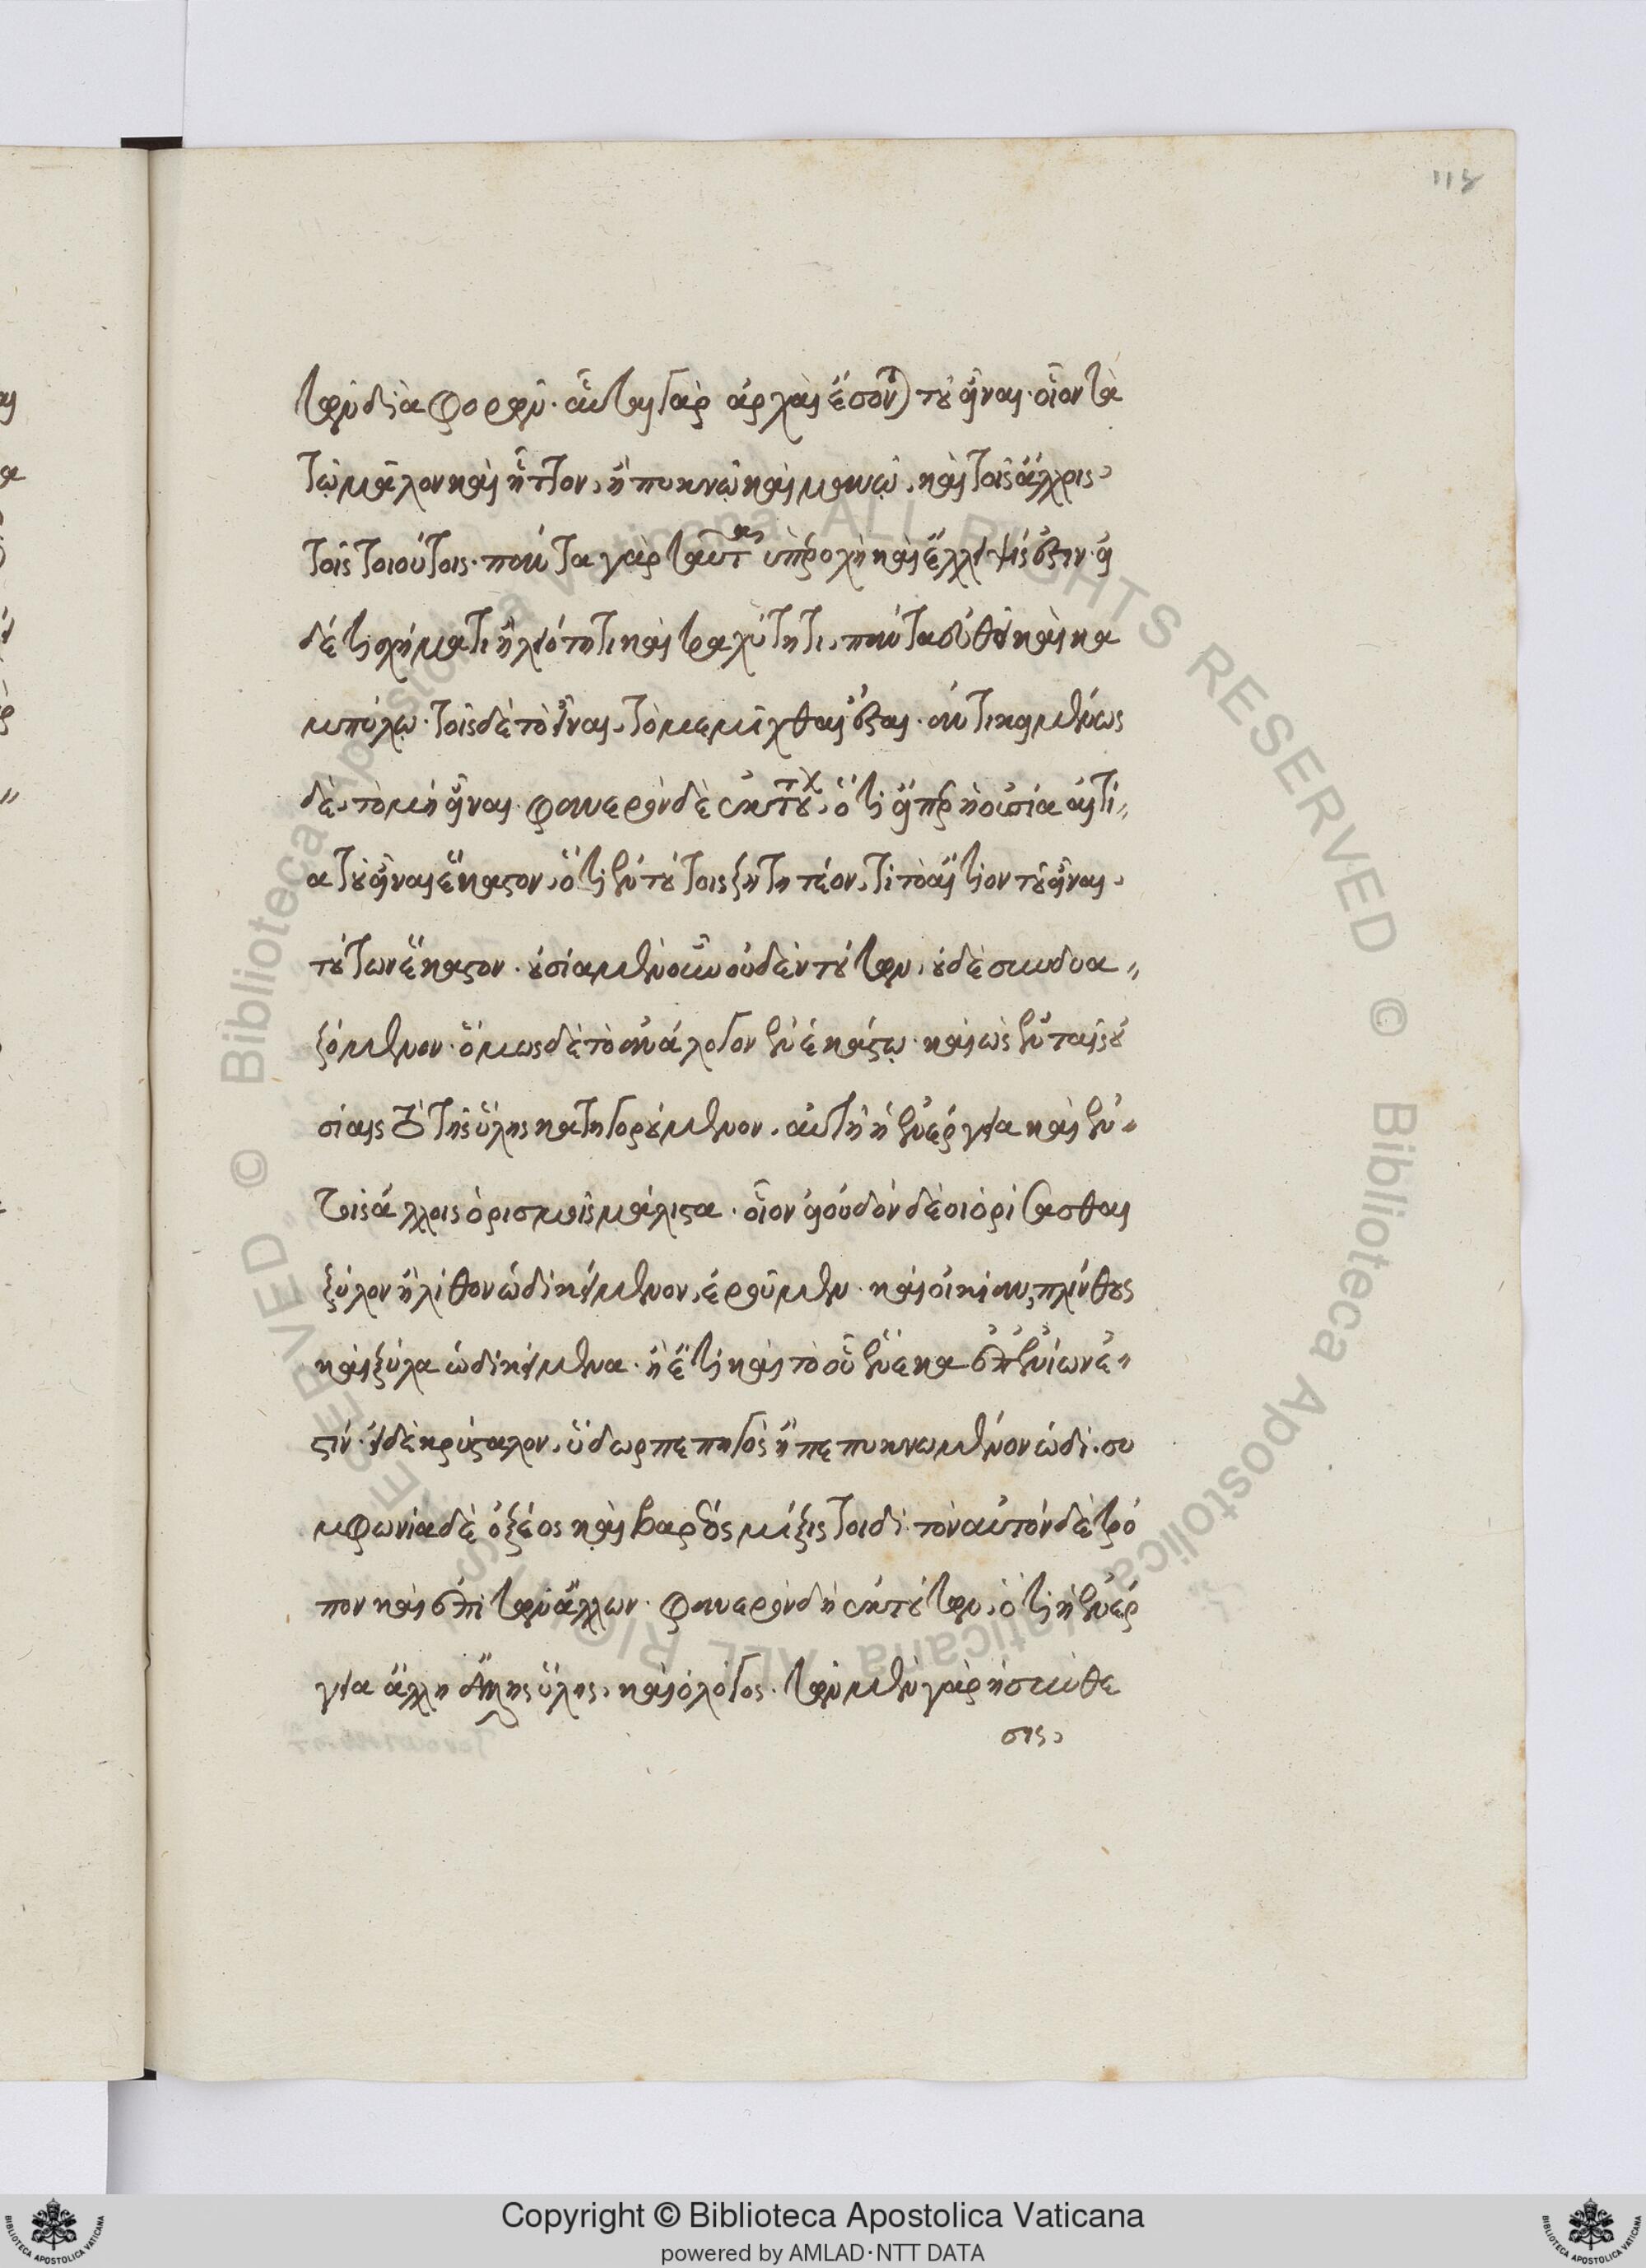 118
τῶν διαφορῶν· αὗται γὰρ ἀρχαὶ ἔσονται τοῦ εἶναι· οἷον τὰ
τῷ μᾶλον καὶ ἧττον, ἢ πυκνῷ καὶ μανῷ, καὶ τοῖς ἄλλοις
τοῖς τοιούτοις· πάντα γὰρ ταῦτα ὑπεροχὴ καὶ ἔλλειψίς ἐστιν· εἰ
δέ τι σχήματι ἢ λειότητι καὶ τραχύτητι, πάντα εὐθεῖ καὶ κα
μπύλῳ· τοῖς δὲ τὸ εἶναι, τὸ μεμῖχθαι ἔσται· ἀντικειμένως
δὲ, τὸ μὴ εἶναι· φανερὸν δὲ ἐκ τούτων, ὅτι εἴπερ ἡ οὐσία αἰτί
α τοῦ εἶναι ἕκαστον, ὅτι ἐν τούτοις ζητητέον, τί τὸ αἴτιον τοῦ εἶναι,
τούτων ἕκαστον· οὐσία μὲν οὖν οὐδὲν τούτων, οὐδὲ συνδυα
ζόμενον· ὅμως δὲ τὸ ἀνάλογον ἐν ἑκάστῳ· καὶ ὡς ἐν ταῖς οὐ
σίαις τὸ τῆς ὕλης κατηγορούμενον, αὐτὴ ἡ ἐνέργεια καὶ ἐν
τοῖς ἄλλοις ὁρισμοῖς μάλιστα· οἷον εἰ οὐδὸν δέοι ὁρίσασθαι
ξύλον ἢ λίθον ὡδὶ κείμενον, ἐροῦμεν· καὶ οἰκίαν, πλίνθους
καὶ ξύλα ὡδὶ κείμενα· ἢ ἔτι καὶ τὸ οὗ ἕνεκα ἐπ' ἐνίων ἐ
στίν· εἰ δὲ κρύσταλον, ὕδωρ πεπηγὸς ἢ πεπυκνωμένον ὡδί· συ
μφωνία δὲ ὀξέος καὶ βαρέος μίξις τοιδί· τὸν αὐτὸν δὲ τρό
πον καὶ ἐπὶ τῶν ἄλλων· φανερὸν δὴ ἐκ τούτων, ὅτι ἡ ἐνέρ
γεια ἄλλη ἄλλης ὕλης, καὶ ὁ λόγος· τῶν μὲν γὰρ ἡ σύνθε
σις,
Copyright © Biblioteca Apostolica Vaticana
powered by AMLAD·NTT DATA
© Biblioteca Apostolica Vaticana ALL RIGHTS RESERVED © Biblioteca Apostolica Vaticana ALL RIGHTS RESERVED